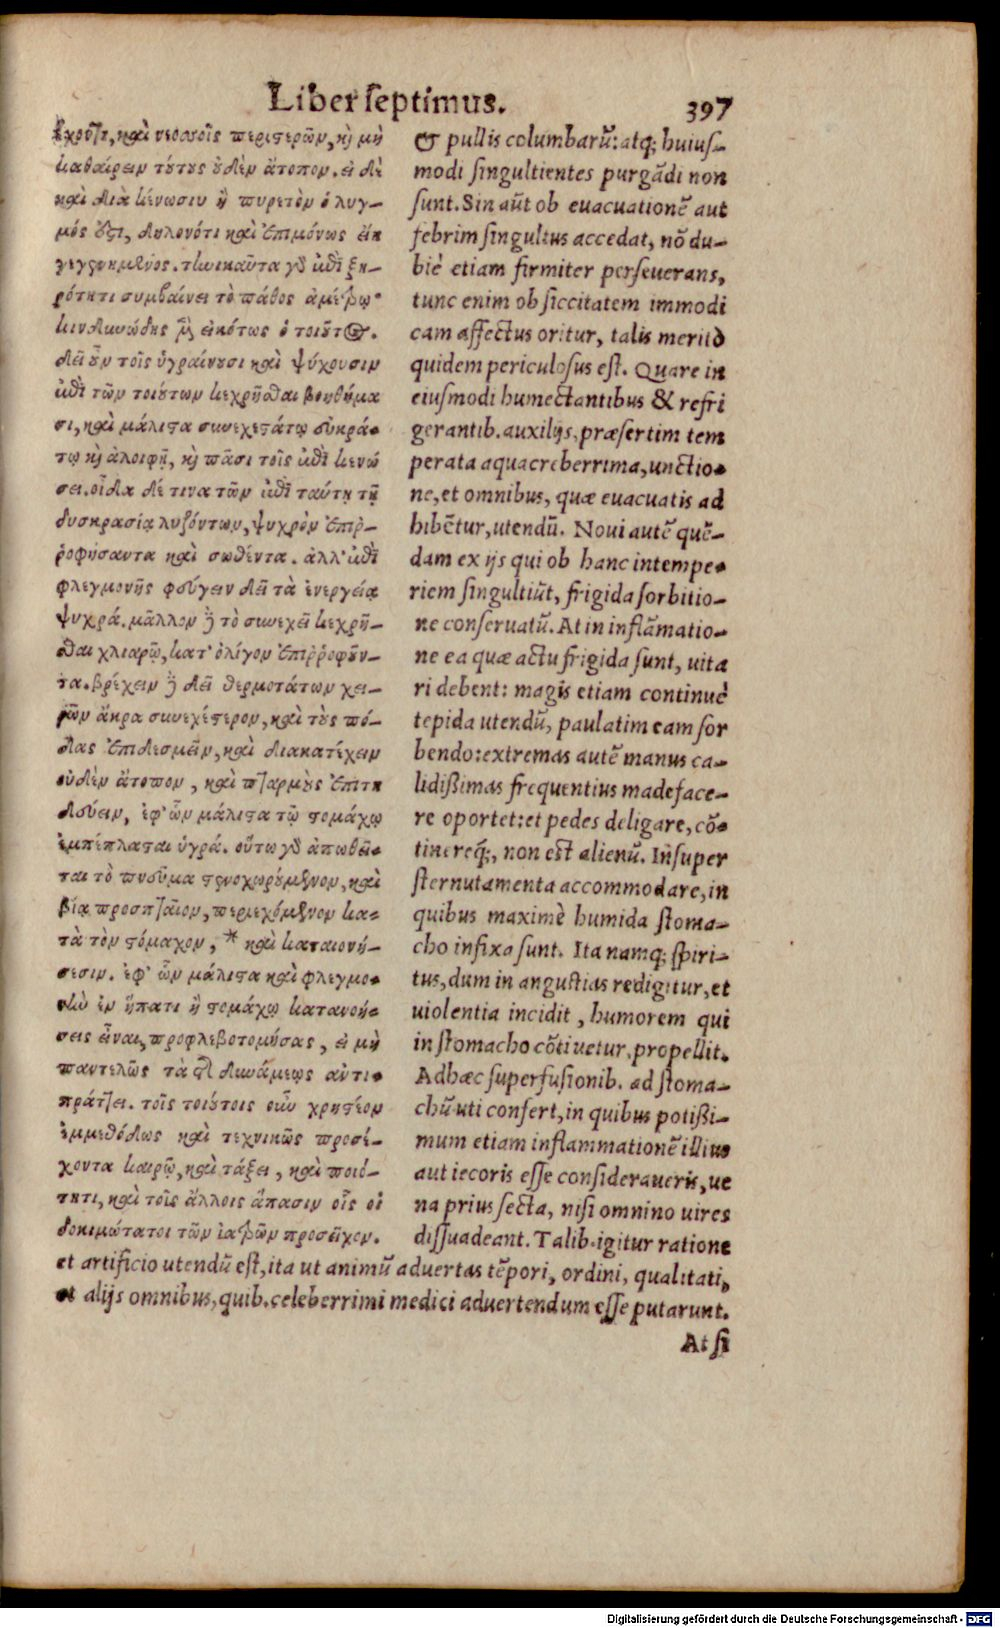 Liber septimus. 397
ἔχουσι, καὶ νεοσσοῖς περιστερῶν, κỳ μὴ
καθαίρειν τούτους οὐδὲν ἄτοπον. εἰ δὲ
καὶ διὰ κένωσιν ἢ πυρετὸν ὁ λυγ-
μός ἐςι, δηλονότι καὶ ἐπιμόνως εἴη
γεγενημένος. τηνικαῦτα γὸ ἐπὶ ξη-
ρότητι συμβαίνει τὸ πάθος ἀμέτρῳ·
κινδυνώδης εἰκότως ὁ τοιοῦτος.
δεῖ οὖν τοῖς ὑγραίνουσι καὶ ψύχουσιν
ἐπὶ τῶν τοιούτων κεχρῆσθαι βοηθήμα
σι, καὶ μάλιςα συνεχεςάτῳ εὐκρά-
τῳ κỳ ἀλοιφῇ, κỳ πᾶσι τοῖς ἐπὶ κενώ
σει. οἶδα δέ τινα τῶν ἐπὶ ταύτῃ τῇ
δυσκρασίᾳ λυζόντων, ψυχρὸν ἐπιῤ-
ῥοφήσαντα καὶ σωθέντα. ἀλλ' ἐπὶ
φλεγμονῆς φεύγειν δεῖ τὰ ἐνεργείᾳ
ψυχρά. μᾶλλον ἢ τὸ συνεχεῖ κεχρῆ-
σθαι χλιαρῷ, κατ' ὀλίγον ἐπιῤῥοφῦν-
τα. βρέχειν δεῖ θερμοτάτων χει-
ρῶν ἄκρα συνεχέςερον, καὶ τοὺς πό-
δας ἐπιδεσμεῖν, καὶ διακατέχειν
οὐδὲν ἄτοπον, καὶ πταρμοὺς ἐπιτη
δεύειν, ἐφ' ὧν μάλιςα τῷ ςομάχῳ
ἐμπέπλαςαι ὑγρά. οὕτω γὸ ἀπωθεῖ-
ται τὸ πνεῦμα ςενοχωρούμενον, καὶ
βίᾳ προσπταῖον, περιεχόμενον κα-
τὰ τὸν ςόμαχον, * καὶ καταιονή-
σεσιν. ἐφ' ὧν μάλιςα καὶ φλεγμο-
νὴν ἐν ἥπατι ἢ ςομάχῳ κατανοή-
σεις εἶναι, προφλεβοτομήσας, εἰ μὴ
παντελῶς τὰ τῆς δυνάμεως ἀντι-
πράττει. τοῖς τοιούτοις οὖν χρηςέον
ἐμμεθόδως καὶ τεχνικῶς προσέ-
χοντα καιρῷ, καὶ τάξει, καὶ ποιό-
τητι, καὶ τοῖς ἄλλοις ἅπασιν οἷς οἱ
δοκιμώτατοι τῶν ἰατρῶν προσεῖχον.
& pullis columbarũ: atq; huiuſ-
modi ſingultientes purgãdi non
ſunt. Sin aũt ob euacuationẽ aut
febrim ſingultus accedat, nõ du-
biè etiam firmiter perſeuerans,
tunc enim ob ſiccitatem immodi
cam affectus oritur, talis meritò
quidem periculoſus eſt. Quare in
eiuſmodi humectantibus & refri
gerantib. auxilijs, præſertim tem
perata aqua creberrima, unctio-
ne, et omnibus, quæ euacuatis ad
hibẽtur, utendũ. Noui autẽ quẽ-
dam ex ijs qui ob hanc intempe-
riem ſingultiũt, frigida ſorbitio-
ne conſeruatũ. At in inflãmatio-
ne ea quæ actu frigida ſunt, uita
ri debent: magis etiam continuè
tepida utendũ, paulatim eam ſor
bendo: extremas autẽ manus ca-
lidißimas frequentius madeface-
re oportet: et pedes deligare, cõ-
tinereq́;, non eſt alienũ. Inſuper
ſternutamenta accommodare, in
quibus maximè humida ſtoma-
cho infixa ſunt. Ita namq; ſpiri-
tus, dum in anguſtias redigitur, et
uiolentia incidit, humorem qui
in ſtomacho cõtinetur, propellit.
Adhæc ſuperfuſionib. ad ſtoma-
chũ uti confert, in quibus potißi-
mum etiam inflammationẽ illius
aut iecoris eſſe conſideraueris, ue
na prius ſecta, niſi omnino uires
diſſuadeant. Talib. igitur ratione
et artificio utendũ eſt, ita ut animũ aduertas tẽpori, ordini, qualitati,
et alijs omnibus, quib. celeberrimi medici aduertendum eſſe putarunt.
At ſi
Digitalisierung gefördert durch die Deutsche Forschungsgemeinschaft - DFG